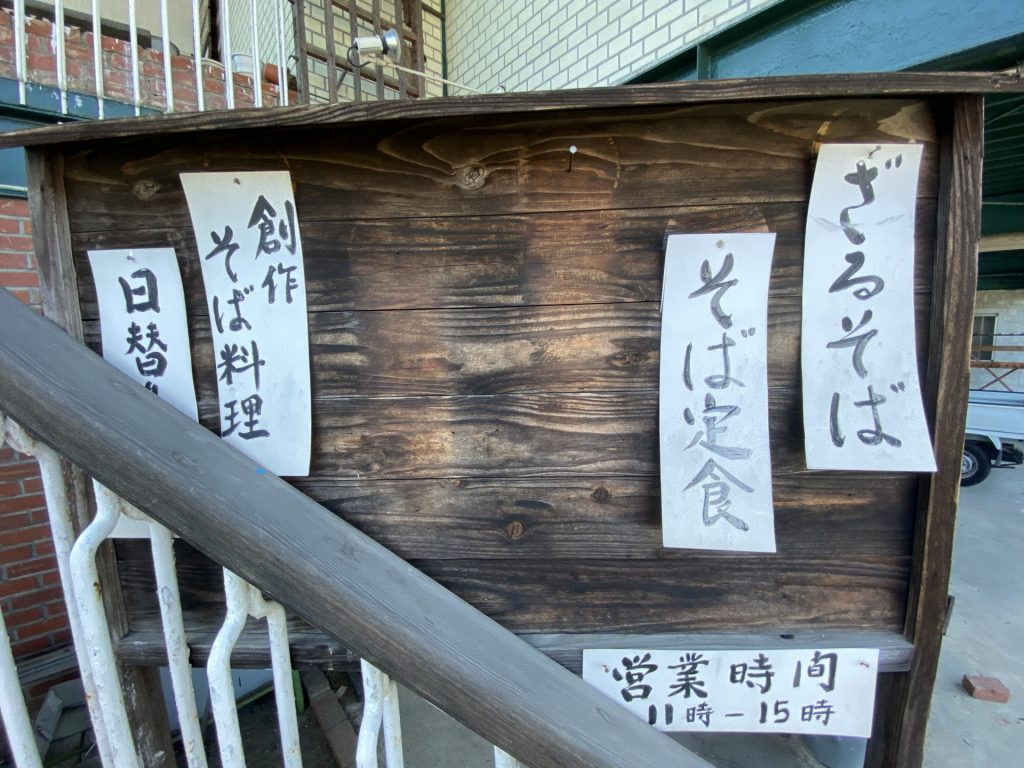 ざるそば
そば定食
創作
そば料理
日替
営業時間
11時-15時